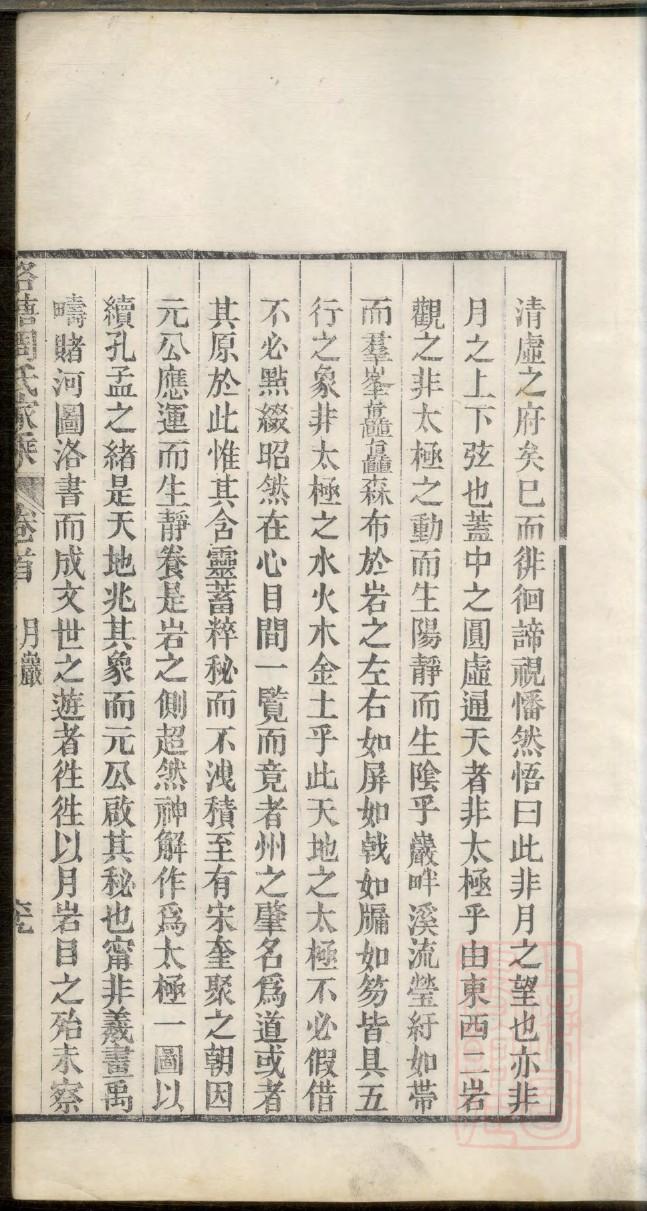 清虛之府矣巳而徘徊諦視憣然悟曰此非月之望也亦非
月之上下弦也葢中之圓虛通天者非太極乎由東西二岩
觀之非太極之動而生陽靜而生陰乎巖畔溪流瑩紆如帶
而羣峯矗矗森布於岩之左右如屏如戟如牖如笏皆具五
行之象非太極之水火木金土乎此天地之太極不必假借
不必點綴昭然在心目間一覽而竟者州之肇名爲道或者
其原於此惟其含靈蓄粹秘而不洩積至有宋奎聚之朝因
元公應運而生靜養是岩之側超然神解作爲太極一圖以
續孔孟之緒是天地兆其象而元公啟其秘也甯非羲畫禹
疇賭河圖洛書而成文世之遊者徃徃以月岩目之殆未察
周氏家乘 卷首 月巖